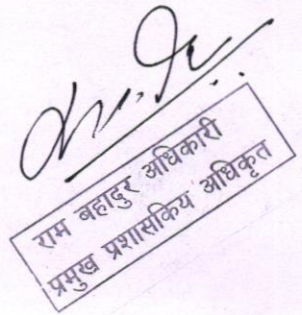 राम बहादुर अधिकारी
प्रमुख प्रशासकिय अधिकृत